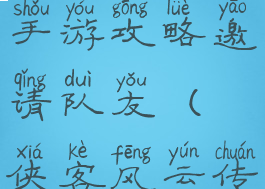 shǒu yóu gōng lüè yāo
手游攻略邀
qǐng duì yǒu
请队友（
xiá kè fēng yún chuán
侠客风云传